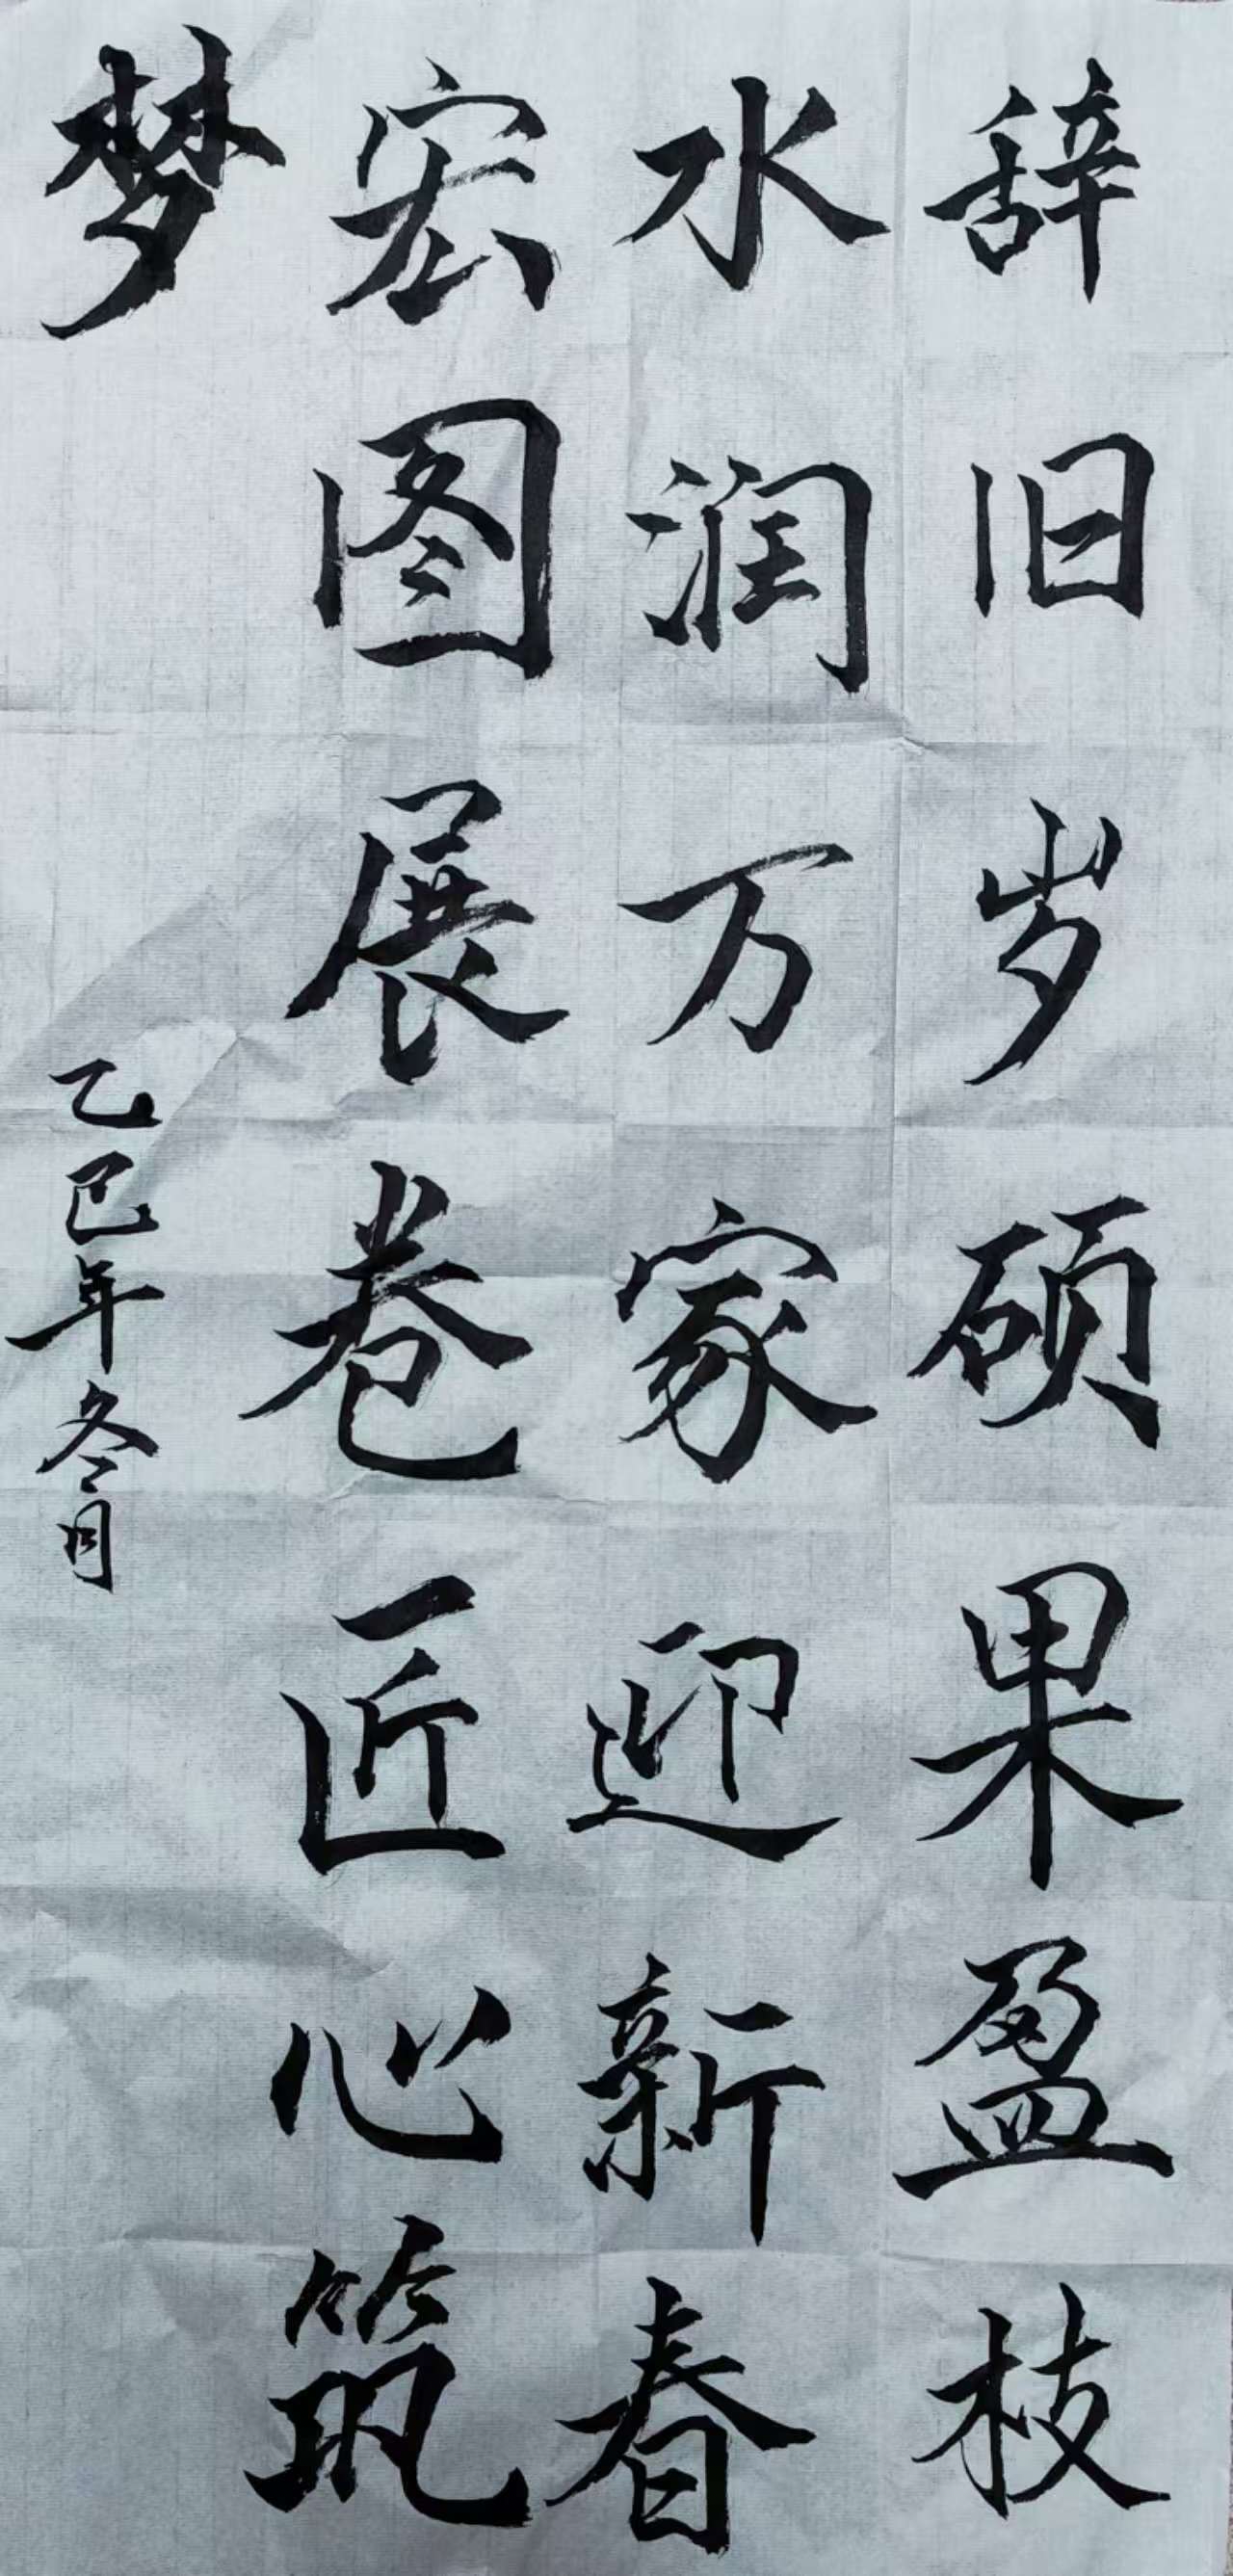 辞旧岁硕果盈枝
水润万家迎新春
宏图展卷匠心筑
梦
乙巳年冬月